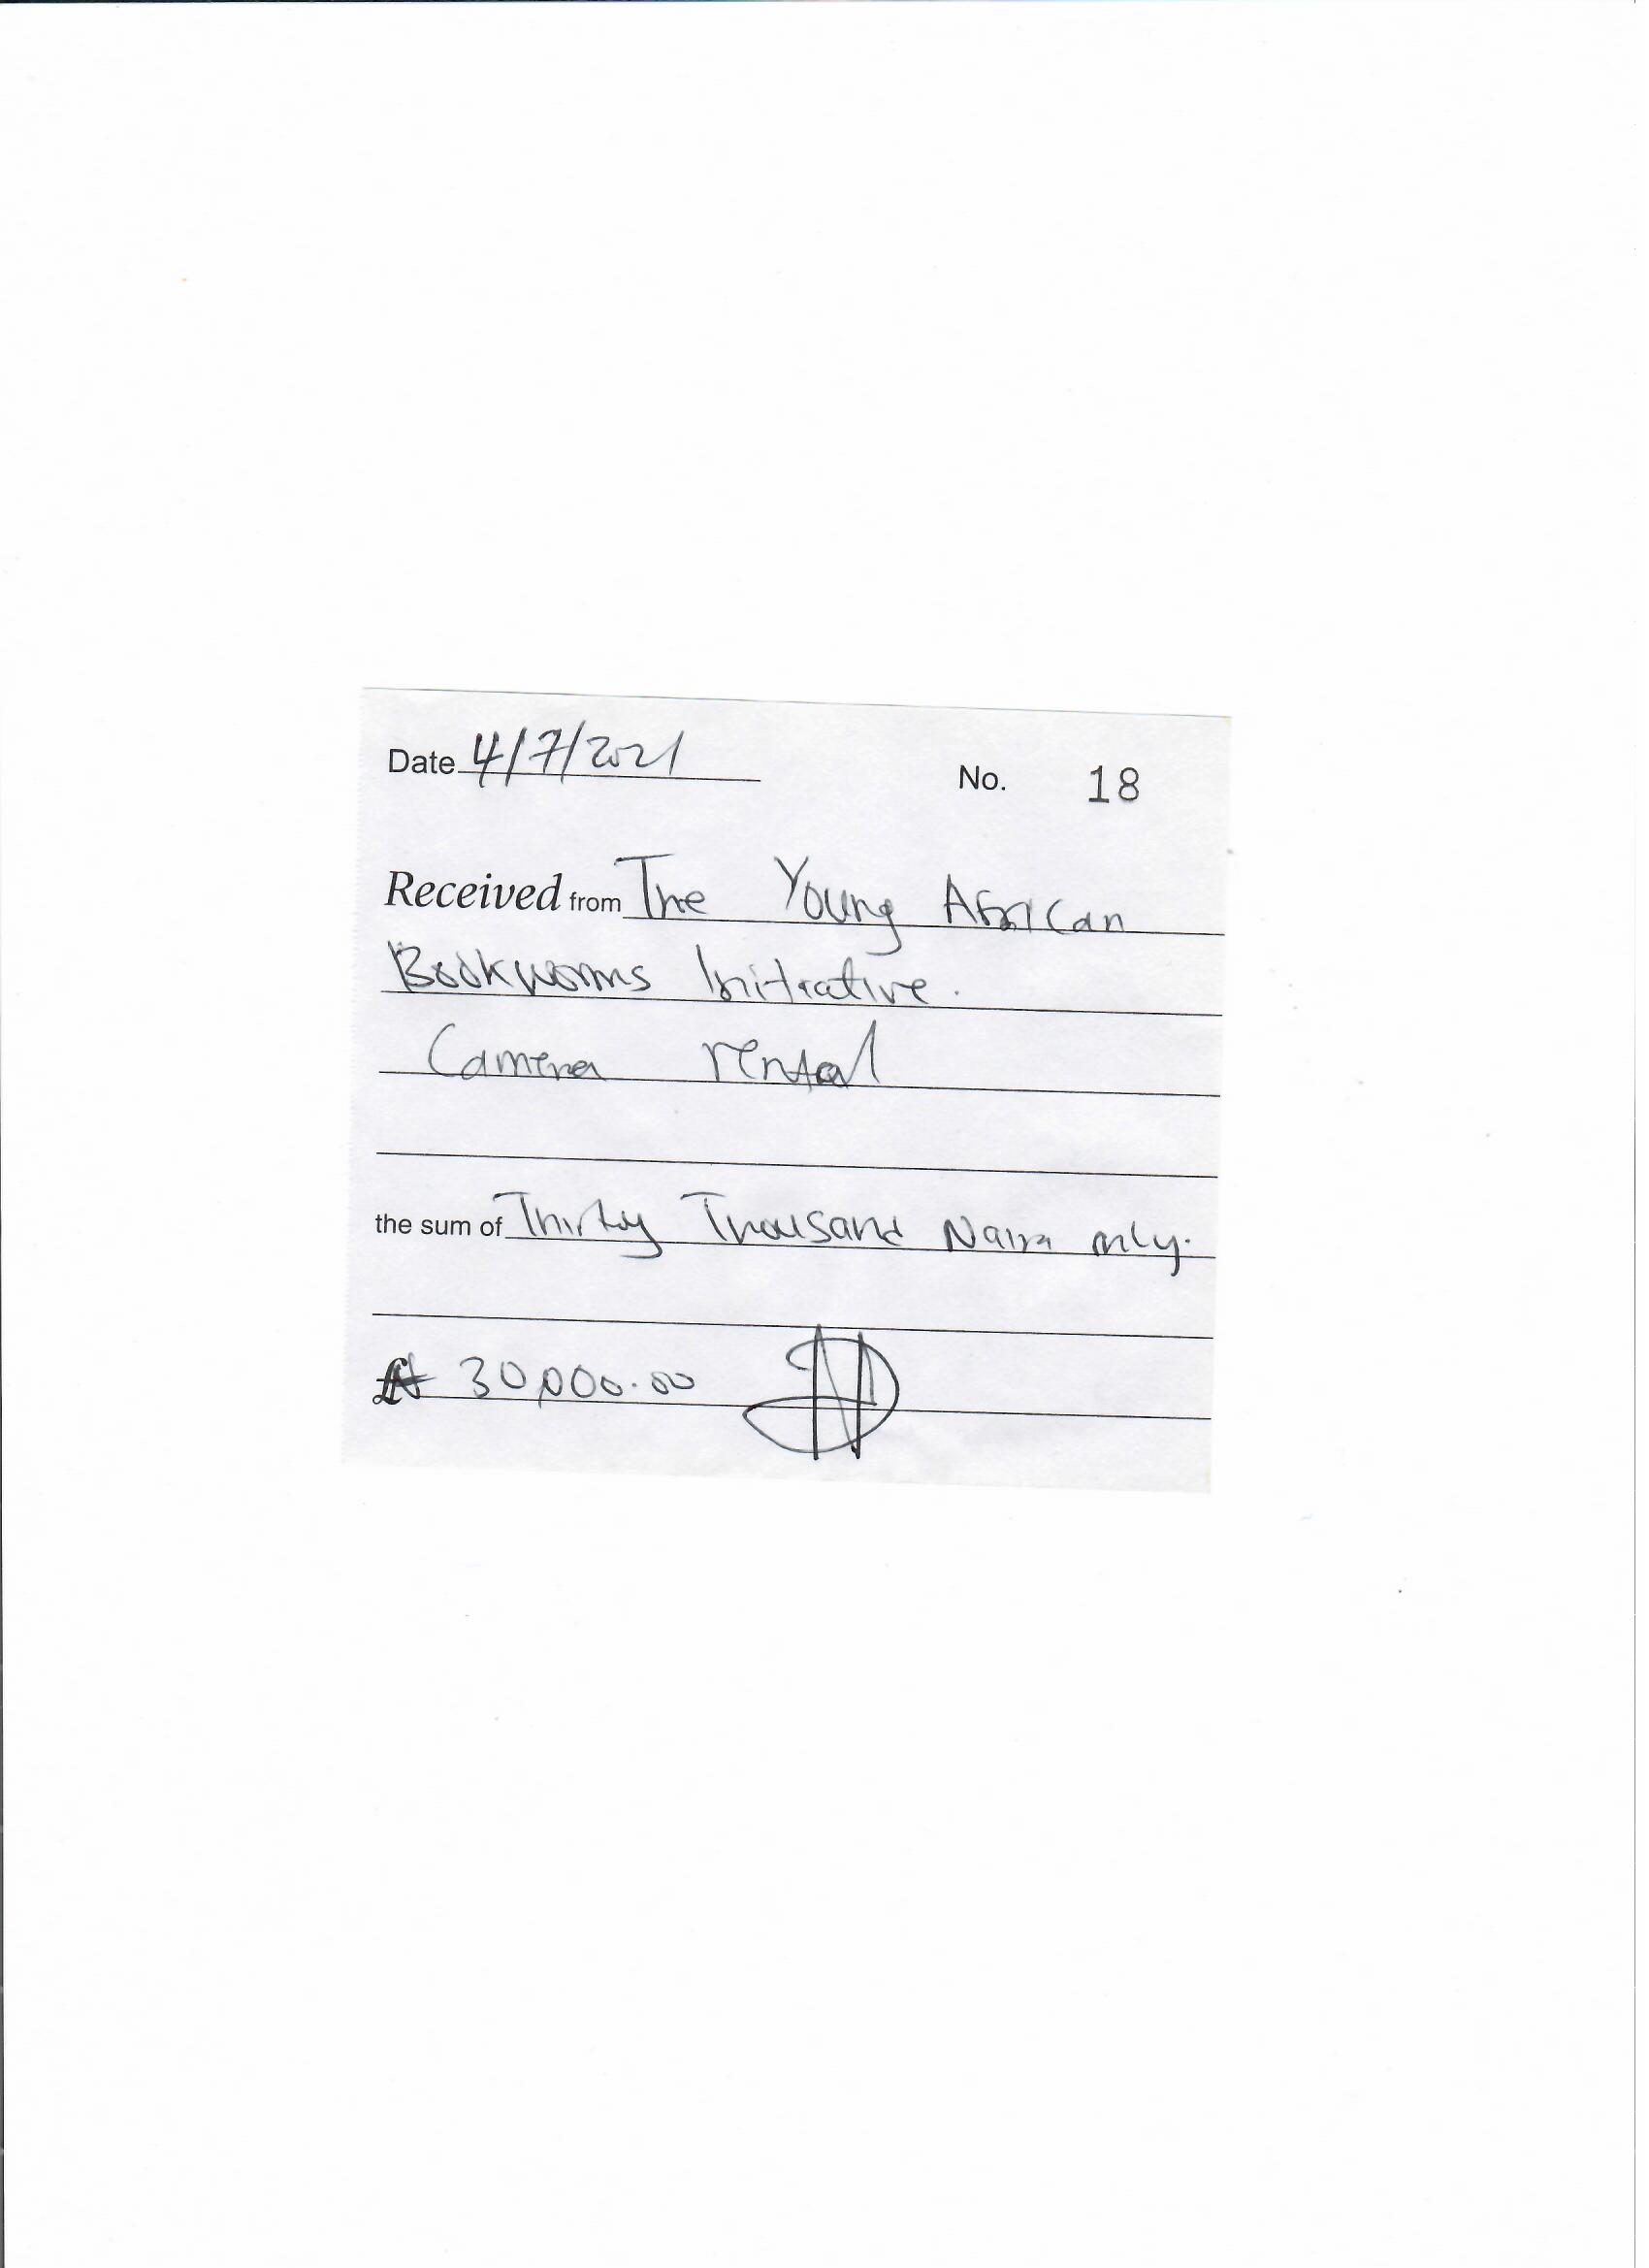 Date 4/7/2021 No. 18
Received from The Young African
Bookworms Initiative.
Camera rental
the sum of Thirty Thousand Naira only.
₦ 30,000.00